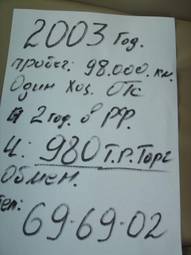 2003 год.
пробег: 98.000. км.
Один хоз. ОТС
2 год. в РФ.
Ц: 980 Т.Р. Торг
Обмен.
тел:
69-69-02